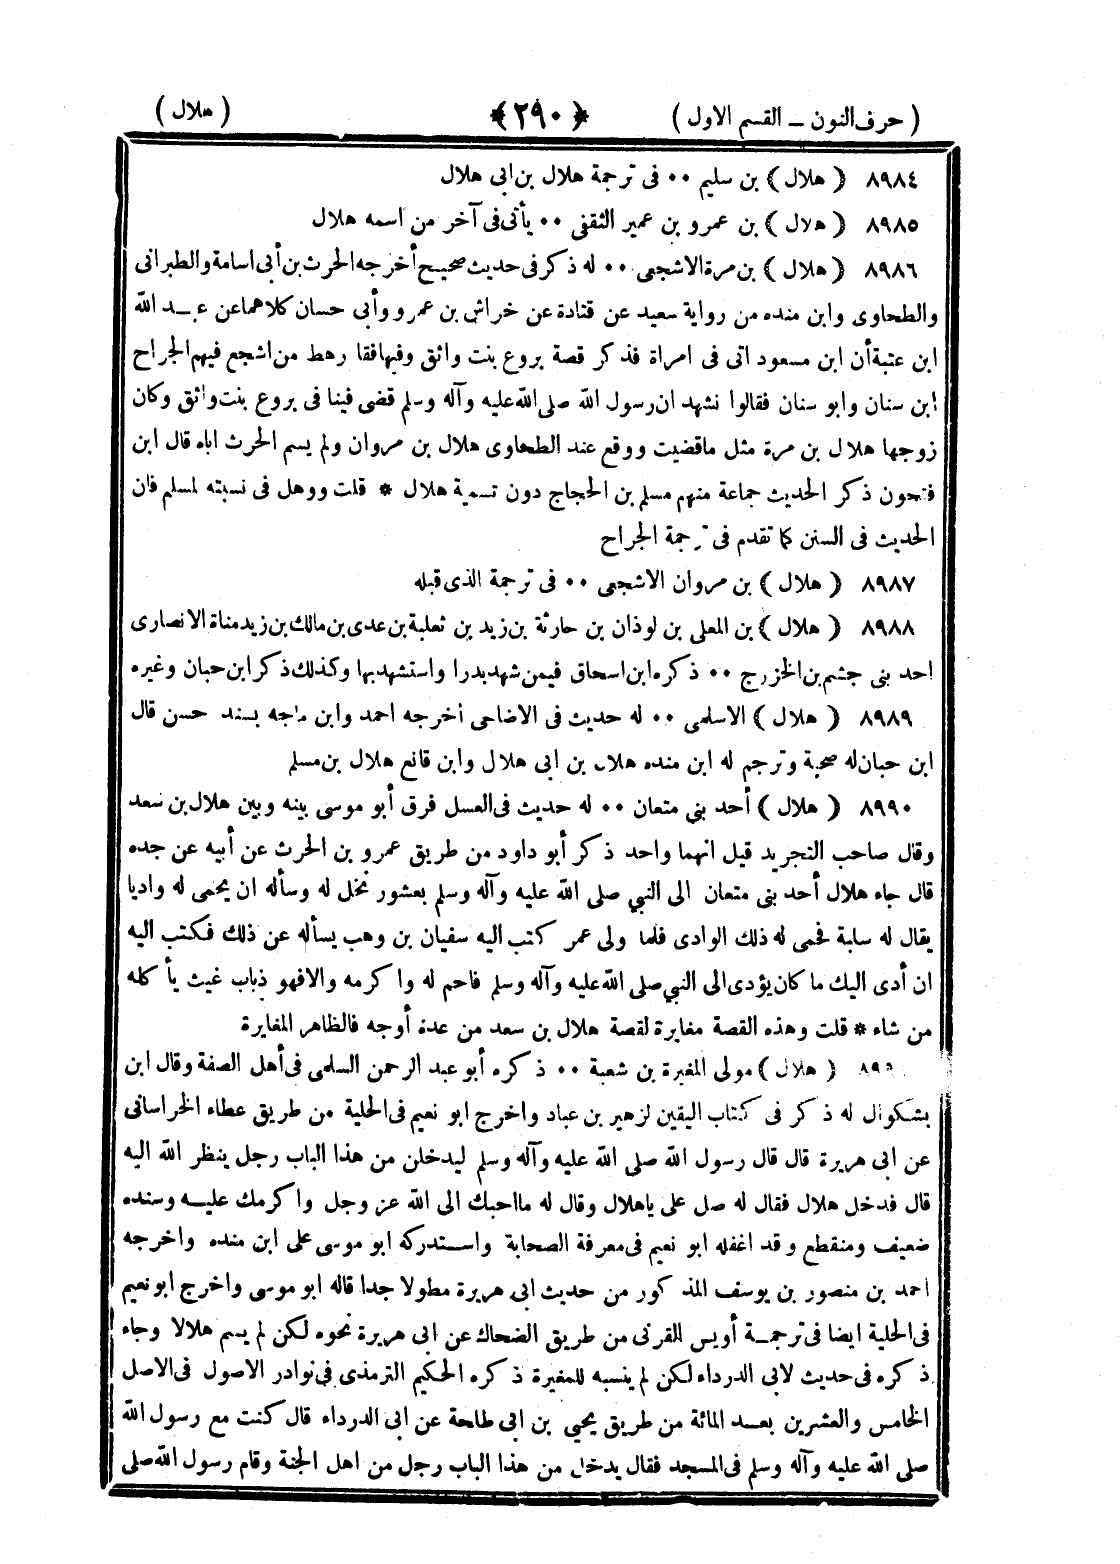 ( حرف النون ــ القسم الاول ) ﴿ ٢٩٠ ﴾ ( هلال )
٨٩٨٤ ( هلال ) بن سليم ٠٠ فى ترجمة هلال بن ابى هلال
٨٩٨٥ ( هلال ) بن عمرو بن عمير الثقفى ٠٠ يأتى فى آخر من اسمه هلال
٨٩٨٦ ( هلال ) بن مرة الاشجعى ٠٠ له ذكر فى حديث صحيح أخرجه الحرث بن أبى اسامة والطبرانى
والطحاوى وابن منده من رواية سعيد عن قتادة عن خراش بن عمرو وأبى حسان كلاهما عن عبد الله
ابن عتبة أن ابن مسعود اتى فى امرأة فذكر قصة بروع بنت واثق وفيها فقا رهط من اشجع فيهم الجراح
ابن سنان وابو سنان فقالوا نشهد ان رسول الله صلى الله عليه وآله وسلم قضى فينا فى بروع بنت واثق وكان
زوجها هلال بن مرة مثل ماقضيت ووقع عند الطحاوى هلال بن مروان ولم يسم الحرث اباه قال ابن
فتحون ذكر الحديث جماعة منهم مسلم بن الحجاج دون تسمية هلال * قلت ووهل فى نسبته لمسلم فان
الحديث فى السنن كما تقدم فى ترجمة الجراح
٨٩٨٧ ( هلال ) بن مروان الاشجعى ٠٠ فى ترجمة الذى قبله
٨٩٨٨ ( هلال ) بن المعلى بن لوذان بن حارثة بن زيد بن ثعلبة بن عدى بن مالك بن زيد مناة الانصارى
احد بنى جشم بن الخزرج ٠٠ ذكره ابن اسحاق فيمن شهد بدرا واستشهد بها وكذلك ذكر ابن حبان وغيره
٨٩٨٩ ( هلال ) الاسلمى ٠٠ له حديث فى الاضاحى أخرجه احمد وابن ماجه بسند حسن قال
ابن حبان له صحبة وترجم له ابن منده هلال بن ابى هلال وابن قانع هلال بن مسلم
٨٩٩٠ ( هلال ) أحد بني متعان ٠٠ له حديث فى العسل فرق أبو موسى بينه وبين هلال بن سعد
وقال صاحب التجريد قيل انهما واحد ذكر أبو داود من طريق عمرو بن الحرث عن أبيه عن جده
قال جاء هلال أحد بنى متعان الى النبي صلى الله عليه وآله وسلم بعشور نخل له وسأله ان يحمى له واديا
يقال له سابة فحمى له ذلك الوادى فلما ولى عمر كتب اليه سفيان بن وهب يسأله عن ذلك فكتب اليه
ان أدى اليك ما كان يؤدى الى النبي صلى الله عليه وآله وسلم فاحم له واكرمه والافهو ذباب غيث يأكله
من شاء * قلت وهذه القصة مغايرة لقصة هلال بن سعد من عدة أوجه فالظاهر المغايرة
( هلال ) مولى المغيرة بن شعبة ٠٠ ذكره أبو عبد الرحمن السلمى فى أهل الصفة وقال ابن
بشكوال له ذكر فى كتاب اليقين لزهير بن عباد واخرج ابو نعيم فى الحلية من طريق عطاء الخراسانى
عن ابى هريرة قال قال رسول الله صلى الله عليه وآله وسلم ليدخلن من هذا الباب رجل ينظر الله اليه
قال فدخل هلال فقال له صل على ياهلال وقال له مااحبك الى الله عز وجل واكرمك عليه وسنده
ضعيف ومنقطع وقد اغفله ابو نعيم فى معرفة الصحابة واستدركه ابو موسى على ابن منده واخرجه
احمد بن منصور بن يوسف المذكور من حديث ابى هريرة مطولا جدا قاله ابو موسى واخرج ابو نعيم
فى الحلية ايضا فى ترجمة أويس القرنى من طريق الضحاك عن ابى هريرة نحوه لكن لم يسم هلالا وجاء
ذكره فى حديث لابى الدرداء لكن لم ينسبه للمغيرة ذكره الحكيم الترمذى فى نوادر الاصول فى الاصل
الخامس والعشرين بعد المائة من طريق يحيي بن ابى طلحة عن ابى الدرداء قال كنت مع رسول الله
صلى الله عليه وآله وسلم فى المسجد فقال يدخل من هذا الباب رجل من اهل الجنة وقام رسول الله صلى